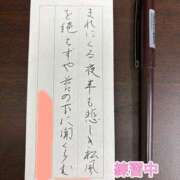 まれにくる夜半も悲しき松風
を絶えずや苔の下に聞くらむ
練習中